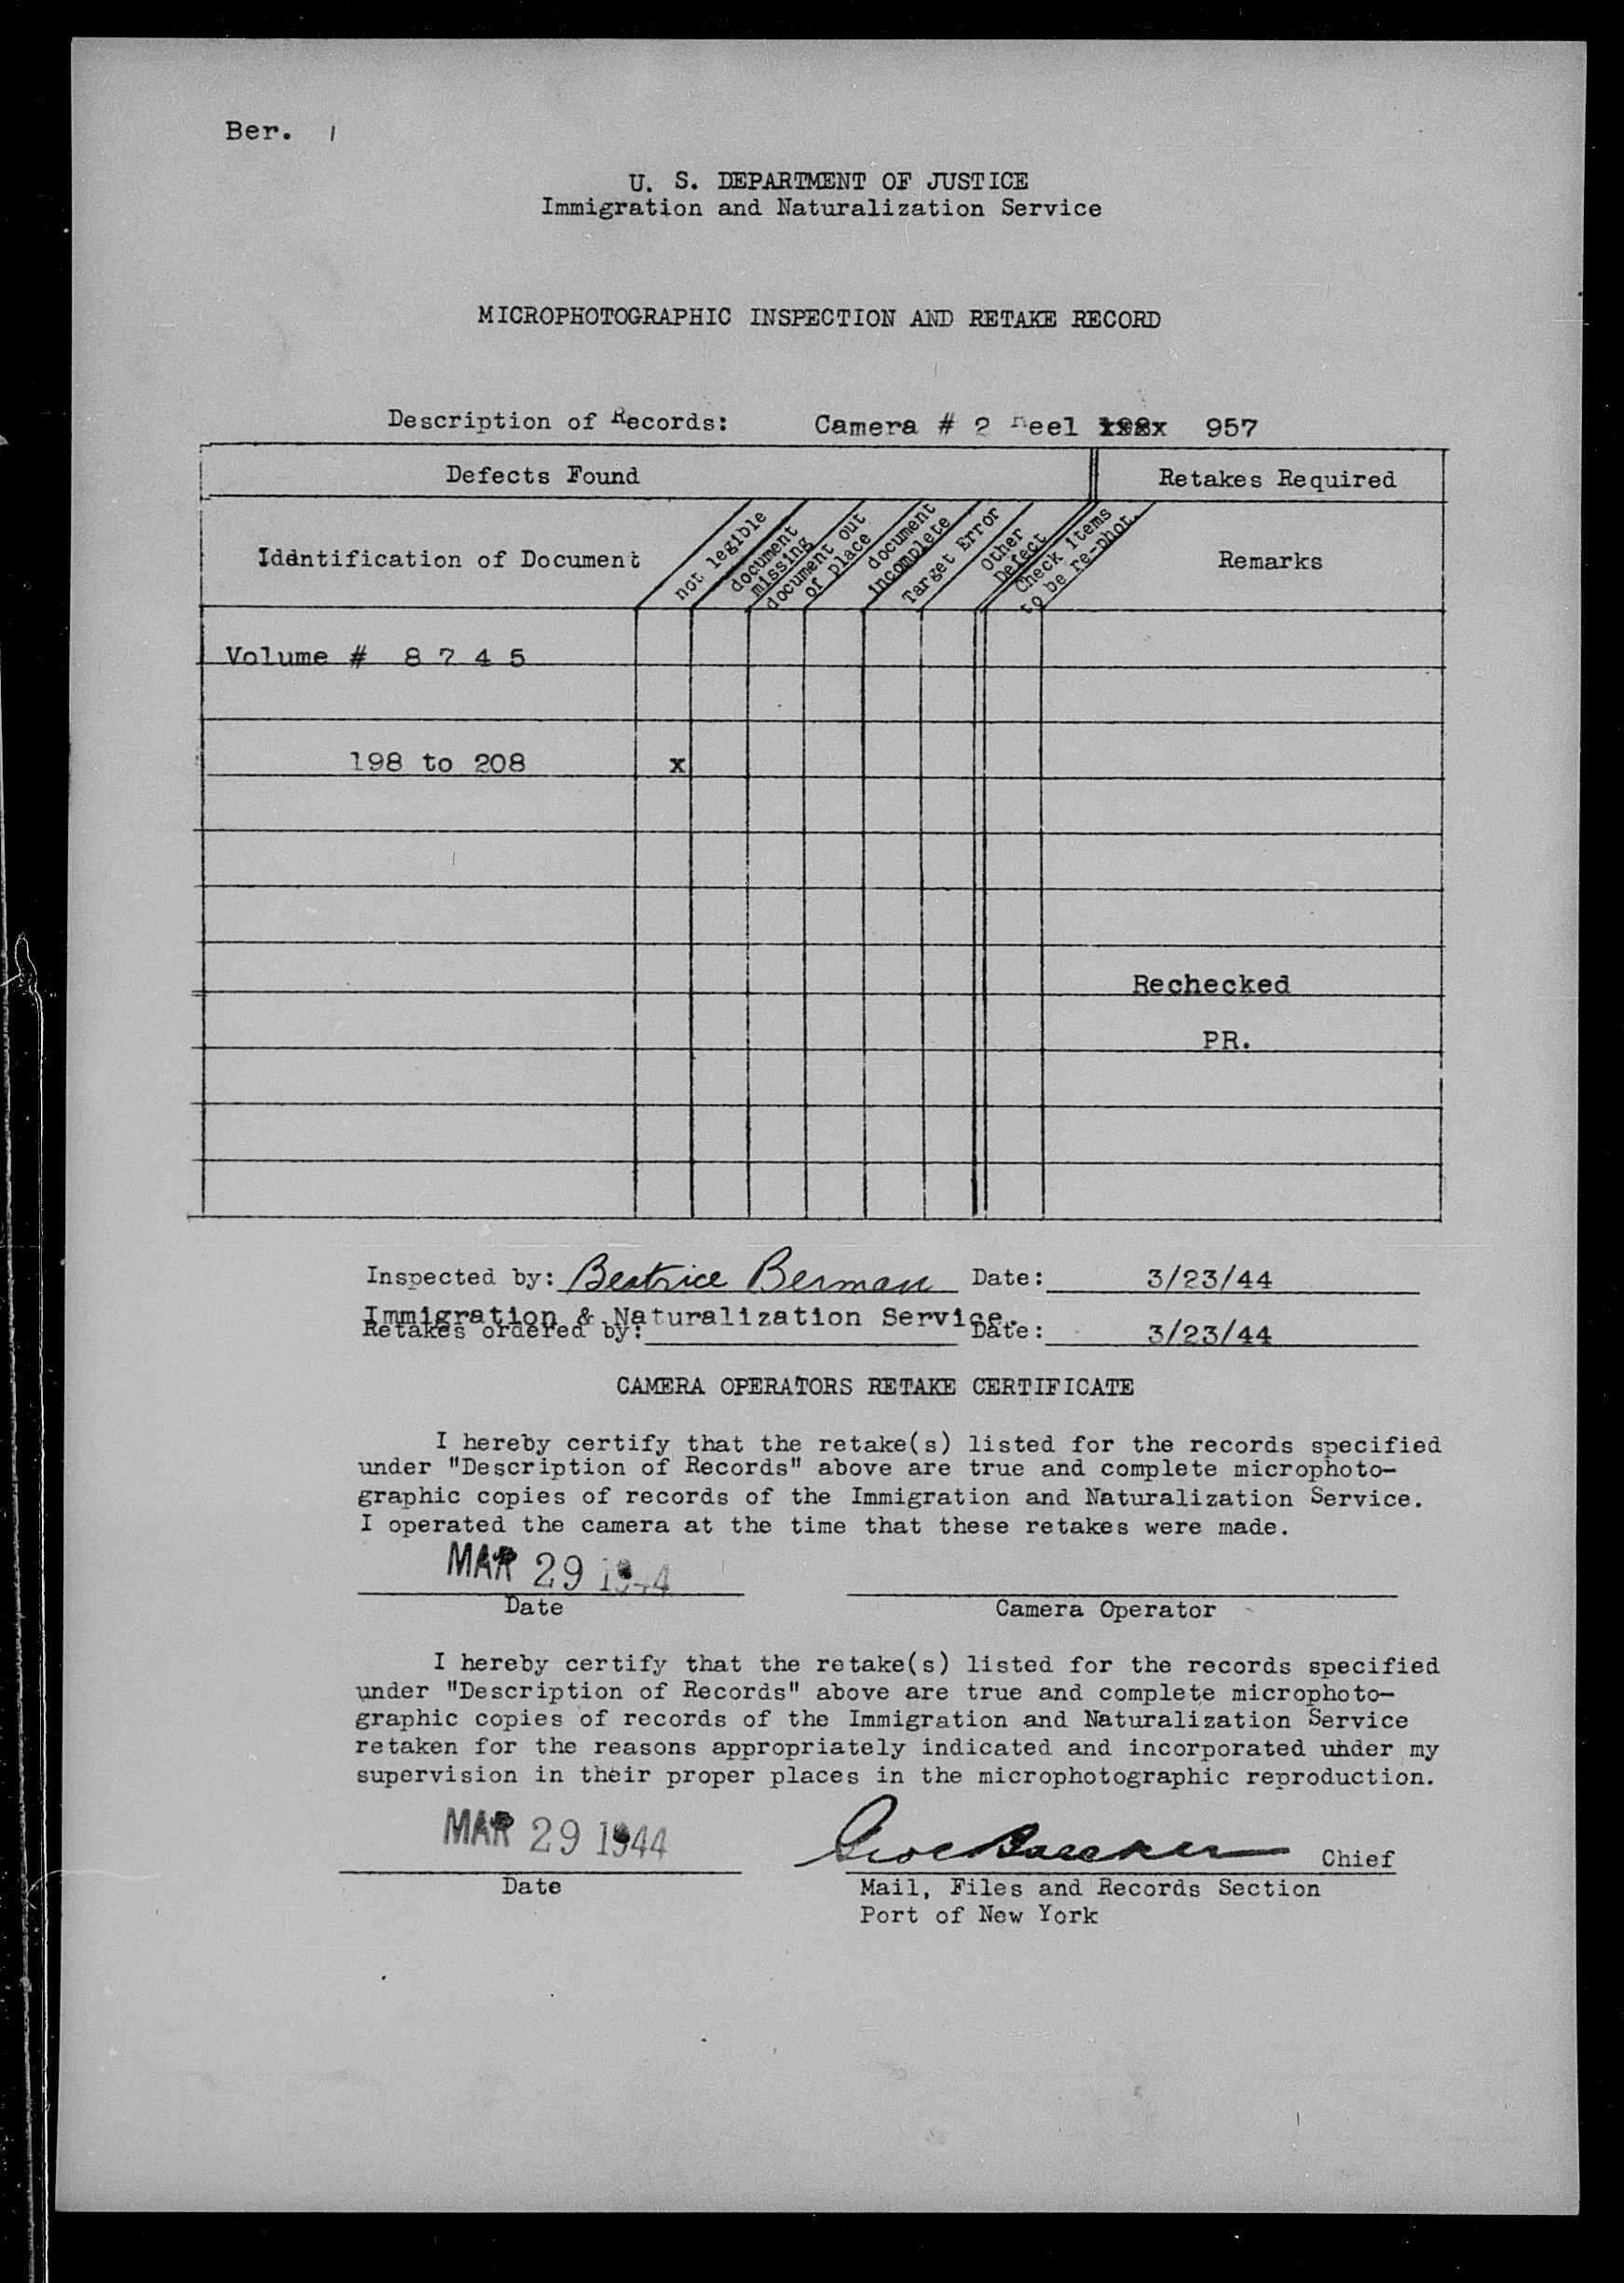 Ber. 1
U. S. DEPARTMENT OF JUSTICE
Immigration and Naturalization Service
MICROPHOTOGRAPHIC INSPECTION AND RETAKE RECORD
Description of Records: Camera # 2 Reel 198x 957
Defects Found
Retakes Required
Idéntification of Document
not legible
document missing
document out of place
document incomplete
Target Error
Other Defect
Check items to be re-phot.
Remarks
Volume # 8 7 4 5
198 to 208 x
Rechecked
PR.
Inspected by: Beatrice Berman Date: 3/23/44
Immigration & Naturalization Service.
Retakes ordered by: Date: 3/23/44
CAMERA OPERATORS RETAKE CERTIFICATE
I hereby certify that the retake(s) listed for the records specified
under "Description of Records" above are true and complete microphoto-
graphic copies of records of the Immigration and Naturalization Service.
I operated the camera at the time that these retakes were made.
MAR 29 1944
Date Camera Operator
I hereby certify that the retake(s) listed for the records specified
under "Description of Records" above are true and complete microphoto-
graphic copies of records of the Immigration and Naturalization Service
retaken for the reasons appropriately indicated and incorporated under my
supervision in their proper places in the microphotographic reproduction.
MAR 29 1944 Chief
Date Mail, Files and Records Section
Port of New York